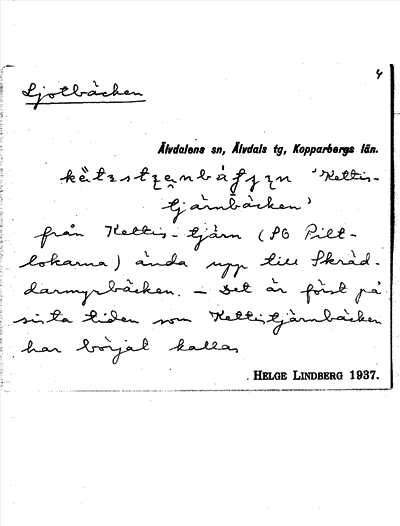 Ljotbäcken
4
Älvdalens sn, Älvdals tg, Kopparbergs län.
'Kettis-
tjärnbäcken'
från Kettis-tjärn (SG Pilt-
lokarna) ända upp till Skräd-
darmyrbäcken. – Det är först på
sista tiden som Kettistjärnbäcken
har börjat kallas
HELGE LINDBERG 1937.